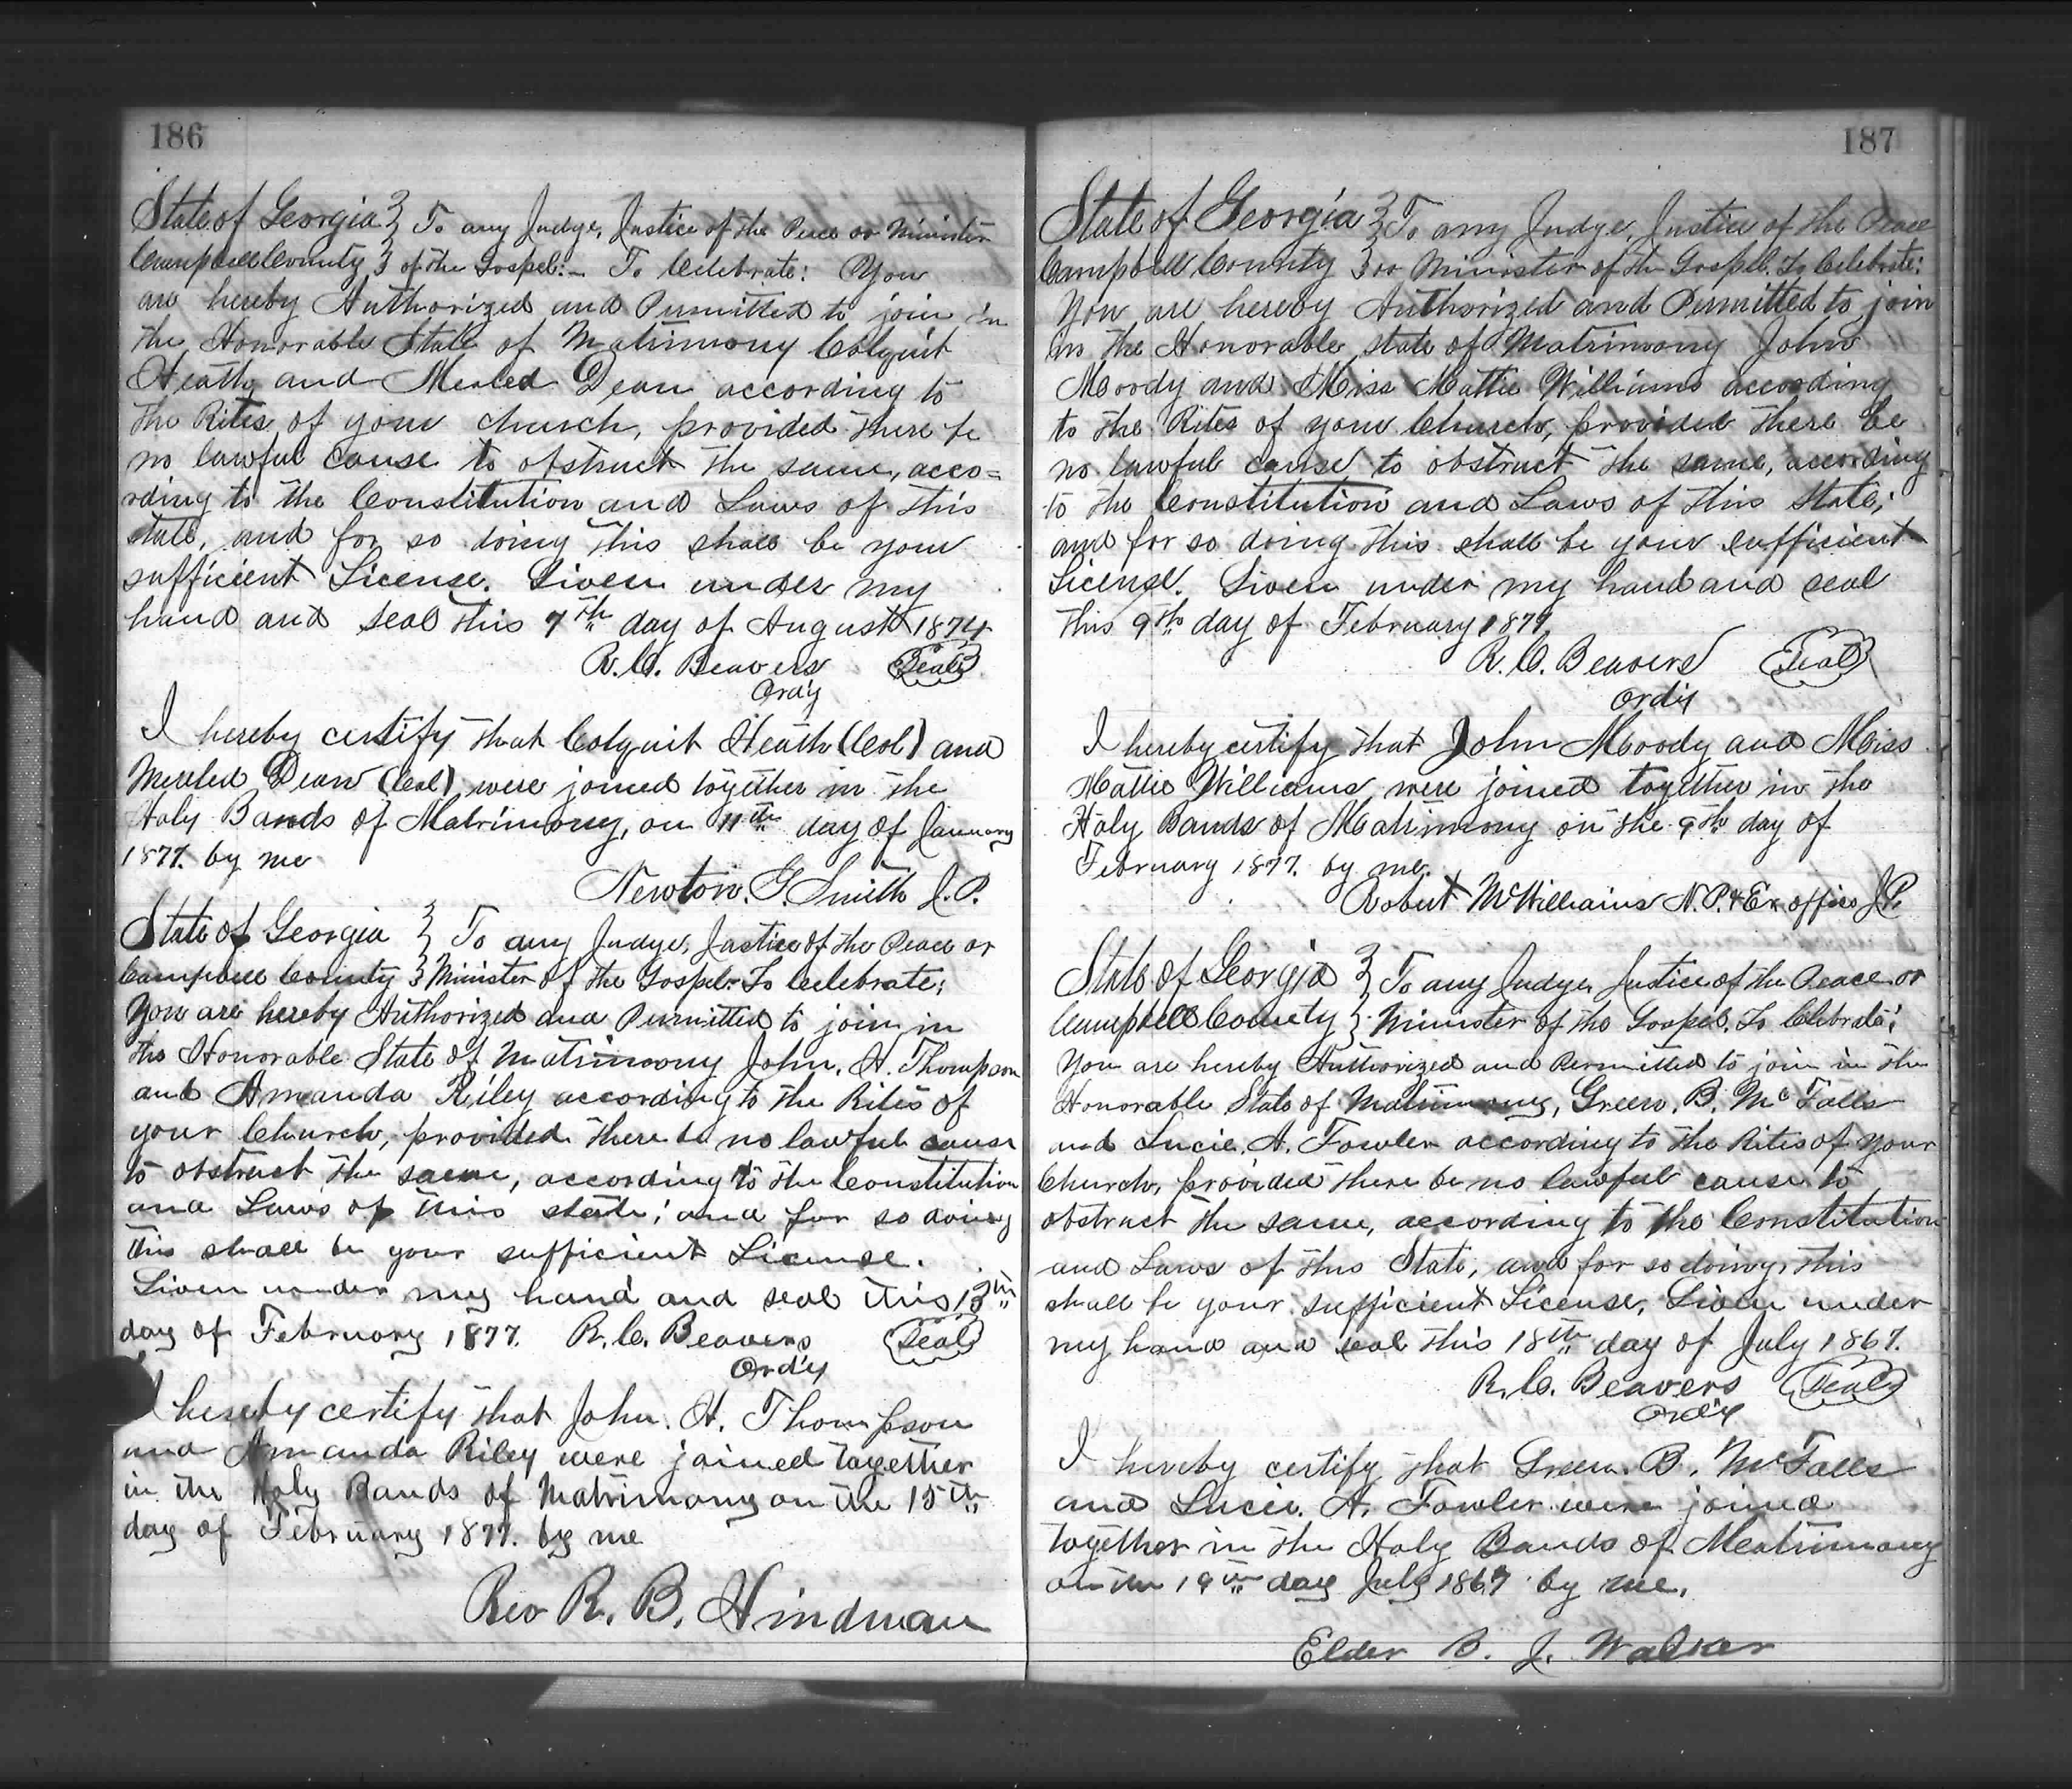 186
State of Georgia } To any Judge, Justice of the Peace or Minister
Campbell County } of the Gospel:- To Celebrate: You
are hereby Authorized and Permitted to join in
the Honorable State of Matrimony Colquit
Heath and Merled Dean according to
the Rites of your church, provided there be
no lawful cause to obstruct the same, acco=
rding to the Constitution and Laws of this
state, and for so doing this shall be your
sufficient License. Given under my
hand and seal this 7th day of August 1874
R. C. Beavers Seal
Ord'y
I hereby certify that Colquit Heath (Col) and
Merled Dean (Col) were joined together in the
Holy Bands of Matrimony, on 11th day of January
1877. by me
Newton. G. Smith J. P.
State of Georgia } To any Judge, Justice of the Peace or
Campbell County } Minister of the Gospel:- To Celebrate;
You are hereby Authorized and Permitted to join in
the Honorable State of Matrimony John. H. Thompson
and Amanda Riley according to the Rites of
your Church, provided there be no lawful cause
to obstruct the same, according to the Constitution
and Laws of this state; and for so doing
this shall be your sufficient License.
Given under my hand and seal this 13th
day of February 1877. R. C. Beavers Seal
Ord'y
I hereby certify that John. H. Thompson
and Amanda Riley were joined together
in the Holy Bands of Matrimony on the 15th
day of February 1877. by me
Rev R. B. Hindman
187
State of Georgia } To any Judge, Justice of the Peace
Campbell County } or Minister of the Gospel. To Celebrate:
You are hereby Authorized and Permitted to join
in the Honorable state of Matrimony John
Moody and Miss Mattie Williams according
to the Rites of your Church, provided there be
no lawful cause to obstruct the same, according
to the Constitution and Laws of this State;
and for so doing this shall be your sufficient
License. Given under my hand and seal
this 9th day of February 1877
R. C. Beavers Seal
Ord'y
I hereby certify that John Moody and Miss
Mattie Williams were joined together in the
Holy Bands of Matrimony on the 9th day of
February 1877. by me.
Robert McWilliams N. P. & Ex officio J. P.
State of Georgia } To any Judge, Justice of the Peace or
Campbell County } Minister of the Gospel. To Clebrate:
You are hereby Authorized and Permitted to join in the
Honorable State of Matrimony, Green. B. McFalls
and Lucie. A. Fowler according to the Rites of your
Church, provided there be no lawful cause to
obstruct the same, according to the Constitution
and Laws of this State, and for so doing, this
shall be your sufficient License, Given under
my hand and seal this 18th day of July 1867.
R. C. Beavers Seal
Ord'y
I hereby certify that Green. B. McFalls
and Lucie. A. Fowler were joined
together in the Holy Bands of Matrimony
on the 19th day July 1867 by me.
Elder B. J. Walker